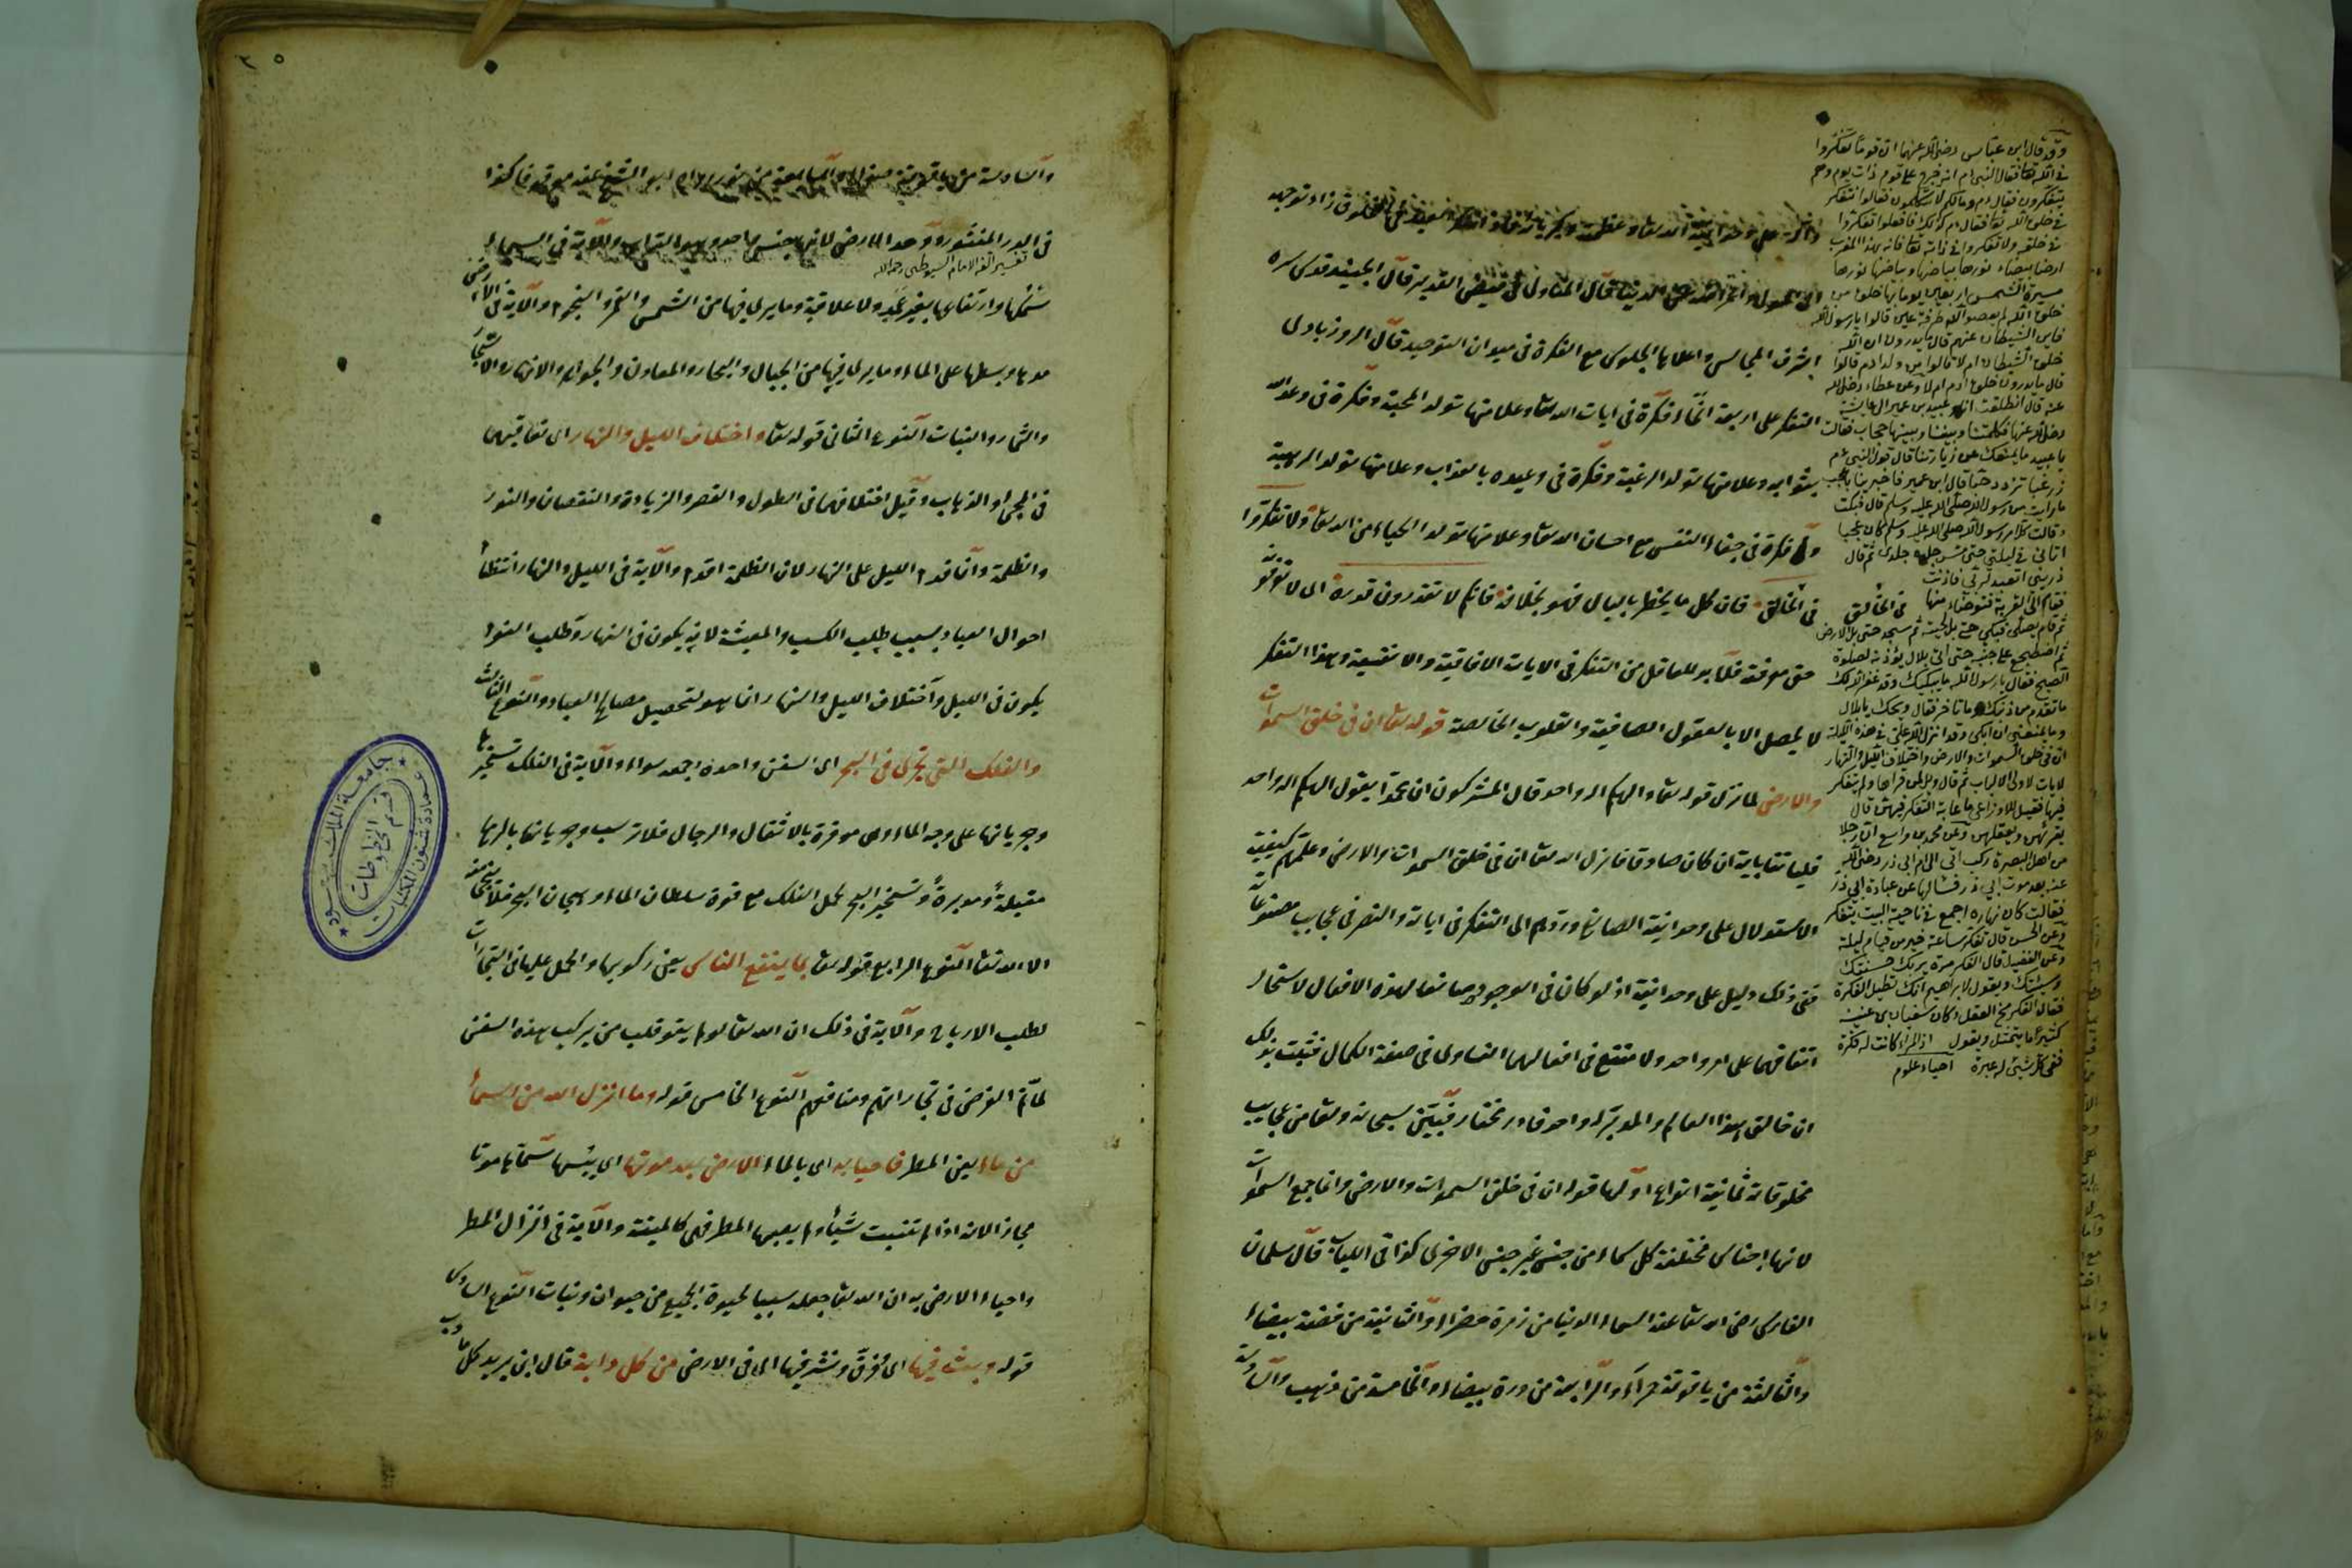 اشرف المجالس واعلاها الجلوس مع الفكرة فى ميدان التوحيد قال الروزبادى
التفكر على اربعة انحاء فكرة فى ايات الله تعا وعلامتها تولد المحبة وفكرة فى وعد الله
بثوابه وعلامتها تولد الرغبة وفكرة فى وعيده بالعذاب وعلامتها تولد الرهبة
وفكرة فى جفاء النفس مع احسان الله تعا وعلامتها تولد الحياء من الله تعا ولا تفكروا
فى الخالق فان كل ما يخطر بالبال فهو بخلافه فانكم لا تقدرون قدره اى لا تعرفونه
حق معرفته فلابد للعاقل من التفكر فى الايات الافاقية والانفسية وهذا التفكر
لا يحصل الا بالعقول الصافية والقلوب الخالصة قوله تعا ان فى خلق السموات
والارض لما نزل قوله تعا والهكم اله واحد قال المشركون ان محمدا يقول الهكم اله واحد
فليأتنا باية ان كان صادقا فانزل الله تعا ان فى خلق السموات والارض وعلمهم كيفية
الاستدلال على وحدانية الصانع وردهم الى التفكر فى اياته والنظر فى عجايب مصنوعاته
ففى ذلك دليل على وحدانيته اذ لو كان فى الوجود صانعا لهذه الافعال لاستحال
اتفاقهما على امر واحد ولامتنع فى افعالهما التساوى فى صفة الكمال فثبت بذلك
ان خالق هذا العالم والمدبر له واحد قادر مختار فبين سبحانه وتعا من عجايب
مخلوقاته ثمانية انواع اولها قوله ان فى خلق السموات والارض وانما جمع السموات
لانها اجناس مختلفة كل سماء من جنس غير جنس الاخرى كذا فى اللباب قال سلمان
الفارسى رضى الله تعا عنه السماء الدنيا من زمرة خضراء والثانية من فضة بيضاء
والثالثة من ياقوتة حمراء والرابعة من درة بيضاء والخامسة من ذهب والسادسة
وقد قال ابن عباس رضى الله عنهما ان قوما تفكروا
يتفكرون فقال م ومالكم لا تتكلمون فقالوا نتفكر
فى خلق الله تعا فقال م كذلك فافعلوا تفكروا
فى خلقه ولا تفكروا فى ذاته تعا فانه بهذا المغرب
ارضا بيضاء نورها بياضها وبياضها نورها
مسيرة الشمس اربعين يوما بها خلق من
خلق الله لم يعصوا الله طرفة عين قالوا يا رسول الله
فاين الشيطان عنهم قال ما يدرون ان الله
خلق الشيطان ام لا قالوا من ولد ادم قال
قال ما يدرون خلق ادم ام لا وعن عطاء رضى الله
عنه قال انطلقت انا وعبيد بن عمير الى عايشة
رضى الله عنها فكلمتنا وبيننا وبينها حجاب فقالت
يا عبيد ما يمنعك عن زيارتنا قال قول النبى م
زر غبا تزدد حبا قال ابن عمير فاخبرينا باعجب
ما رايته من رسول الله صلى الله عليه وسلم قال فبكت
وقالت كل امر رسول الله صلى الله عليه وسلم كان عجبا
اتانى فى ليلتى حتى مس جلده جلدى ثم قال
ذرينى اتعبد لربى فاذنت
فقام الى القربة فتوضاء منها
ثم قام يصلى فبكى حتى بل لحيته ثم سجد حتى بل الارض
ثم اضطجع على جنبه حتى اتى بلال يؤذنه لصلوة
الصبح فقال يا رسول الله ما يبكيك وقد غفر الله لك
ما تقدم من ذنبك وما تاخر فقال ويحك يا بلال
وما يمنعنى ان ابكى وقد انزل الله على فى هذه الليلة
ان فى خلق السموات والارض واختلاف الليل والنهار
لايات لاولى الالباب ثم قال ويل لمن قراها ولم يتفكر
فيها فقيل للاوزاعى ما غاية التفكر فيهن قال
يقرئهن ويعقلهن وعن محمد بن واسع ان رجلا
من اهل البصرة ركب الى ام ابى ذر رضى الله
عنه بعد موت ابى ذر فسالها عن عبادة ابى ذر
فقالت كان نهاره اجمع فى ناحية البيت يتفكر
وعن الحسن قال تفكر ساعة خير من قيام ليلة
وعن الفضيل قال الفكر مرة يريك حسنتك
وسيئتك ويقول لابراهيم انك تطيل الفكرة
فقال الفكر مخ العقل وكان سفيان بن عيينه
كثيرا ما يتمثل ويقول اذا المرء كانت له فكرة
ففى كل شىء له عبرة احياء علوم
فى الدر المنثور ووحد الارض لانها جنس واحد وهو التراب والآية فى السماء
تفسير الفه الامام السيوطى رحمه الله
سمكها وارتفاعها بغير عمد ولا علاقة وما يرى فيها من الشمس والقمر والنجوم والآية فى الارض
مدها وبسطها على الماء وما يرى فيها من الجبال والبحار والمعادن والجواهر والانهار والاشجار
والثمار والنبات النوع الثانى قوله تعا واختلاف الليل والنهار اى تعاقبهما
فى المجئ والذهاب وقيل اختلافهما فى الطول والقصر والزيادة والنقصان والنور
والظلمة وانما قدم الليل على النهار لان الظلمة اقدم والآية فى الليل والنهار انتظام
احوال العباد بسبب طلب الكسب والمعيشة لانه يكون فى النهار وطلب النوم
يكون فى الليل واختلاف الليل والنهار انما هو لتحصيل مصالح العباد والنوع الثالث
والفلك التى تجرى فى البحر اى السفن واحده وجمعه سواء والآية فى الفلك تسخيرها
وجريانها على وجه الماء وهى موقرة بالاثقال والرجال فلا ترسب وجريانها بالريح
مقبلة ومدبرة وتسخير البحر لحمل الفلك مع قوة سلطان الماء وهيجان البحر فلا ينجى منه
الا الله تعا النوع الرابع قوله تعا بما ينفع الناس يعنى ركوبها والحمل عليها فى التجارات
لطلب الارباح والآية فى ذلك ان الله تعا لو لم يقو قلب من يركب هذه السفن
لما تم الغرض فى تجاراتهم ومنافعهم النوع الخامس قوله وما انزل الله من السماء
من ماء يعنى المطر فاحيا به اى بالماء الارض بعد موتها اى يبسها سماها موتا
مجازا لانه اذا لم تنبت شيأ ولم يصبها المطر فهى كالميتة والآية فى انزال المطر
واحياء الارض به ان الله تعا جعله سببا لحيوة الجميع من حيوان ونبات النوع السادس
قوله وبث فيها اى فرق ونشر فيها اى فى الارض من كل دابة قال ابن يريد كل ما دب
جامعة الملك سعود
عمادة شئون المكتبات
قسم المخطوطات